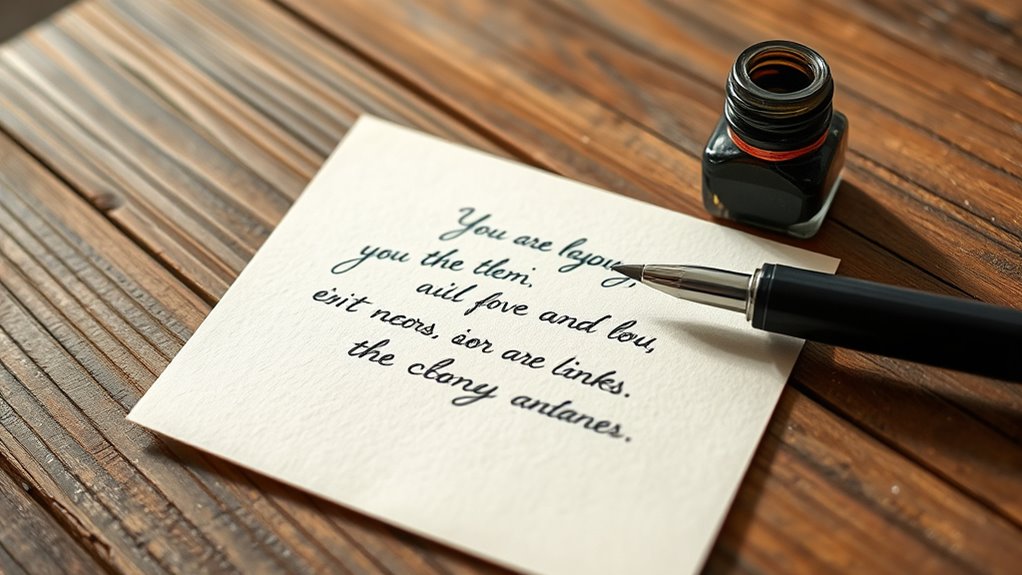 You are lepou,
you the tlem.
auil fove and lou,
einit ncors, ior are links.
the cbany antanes.